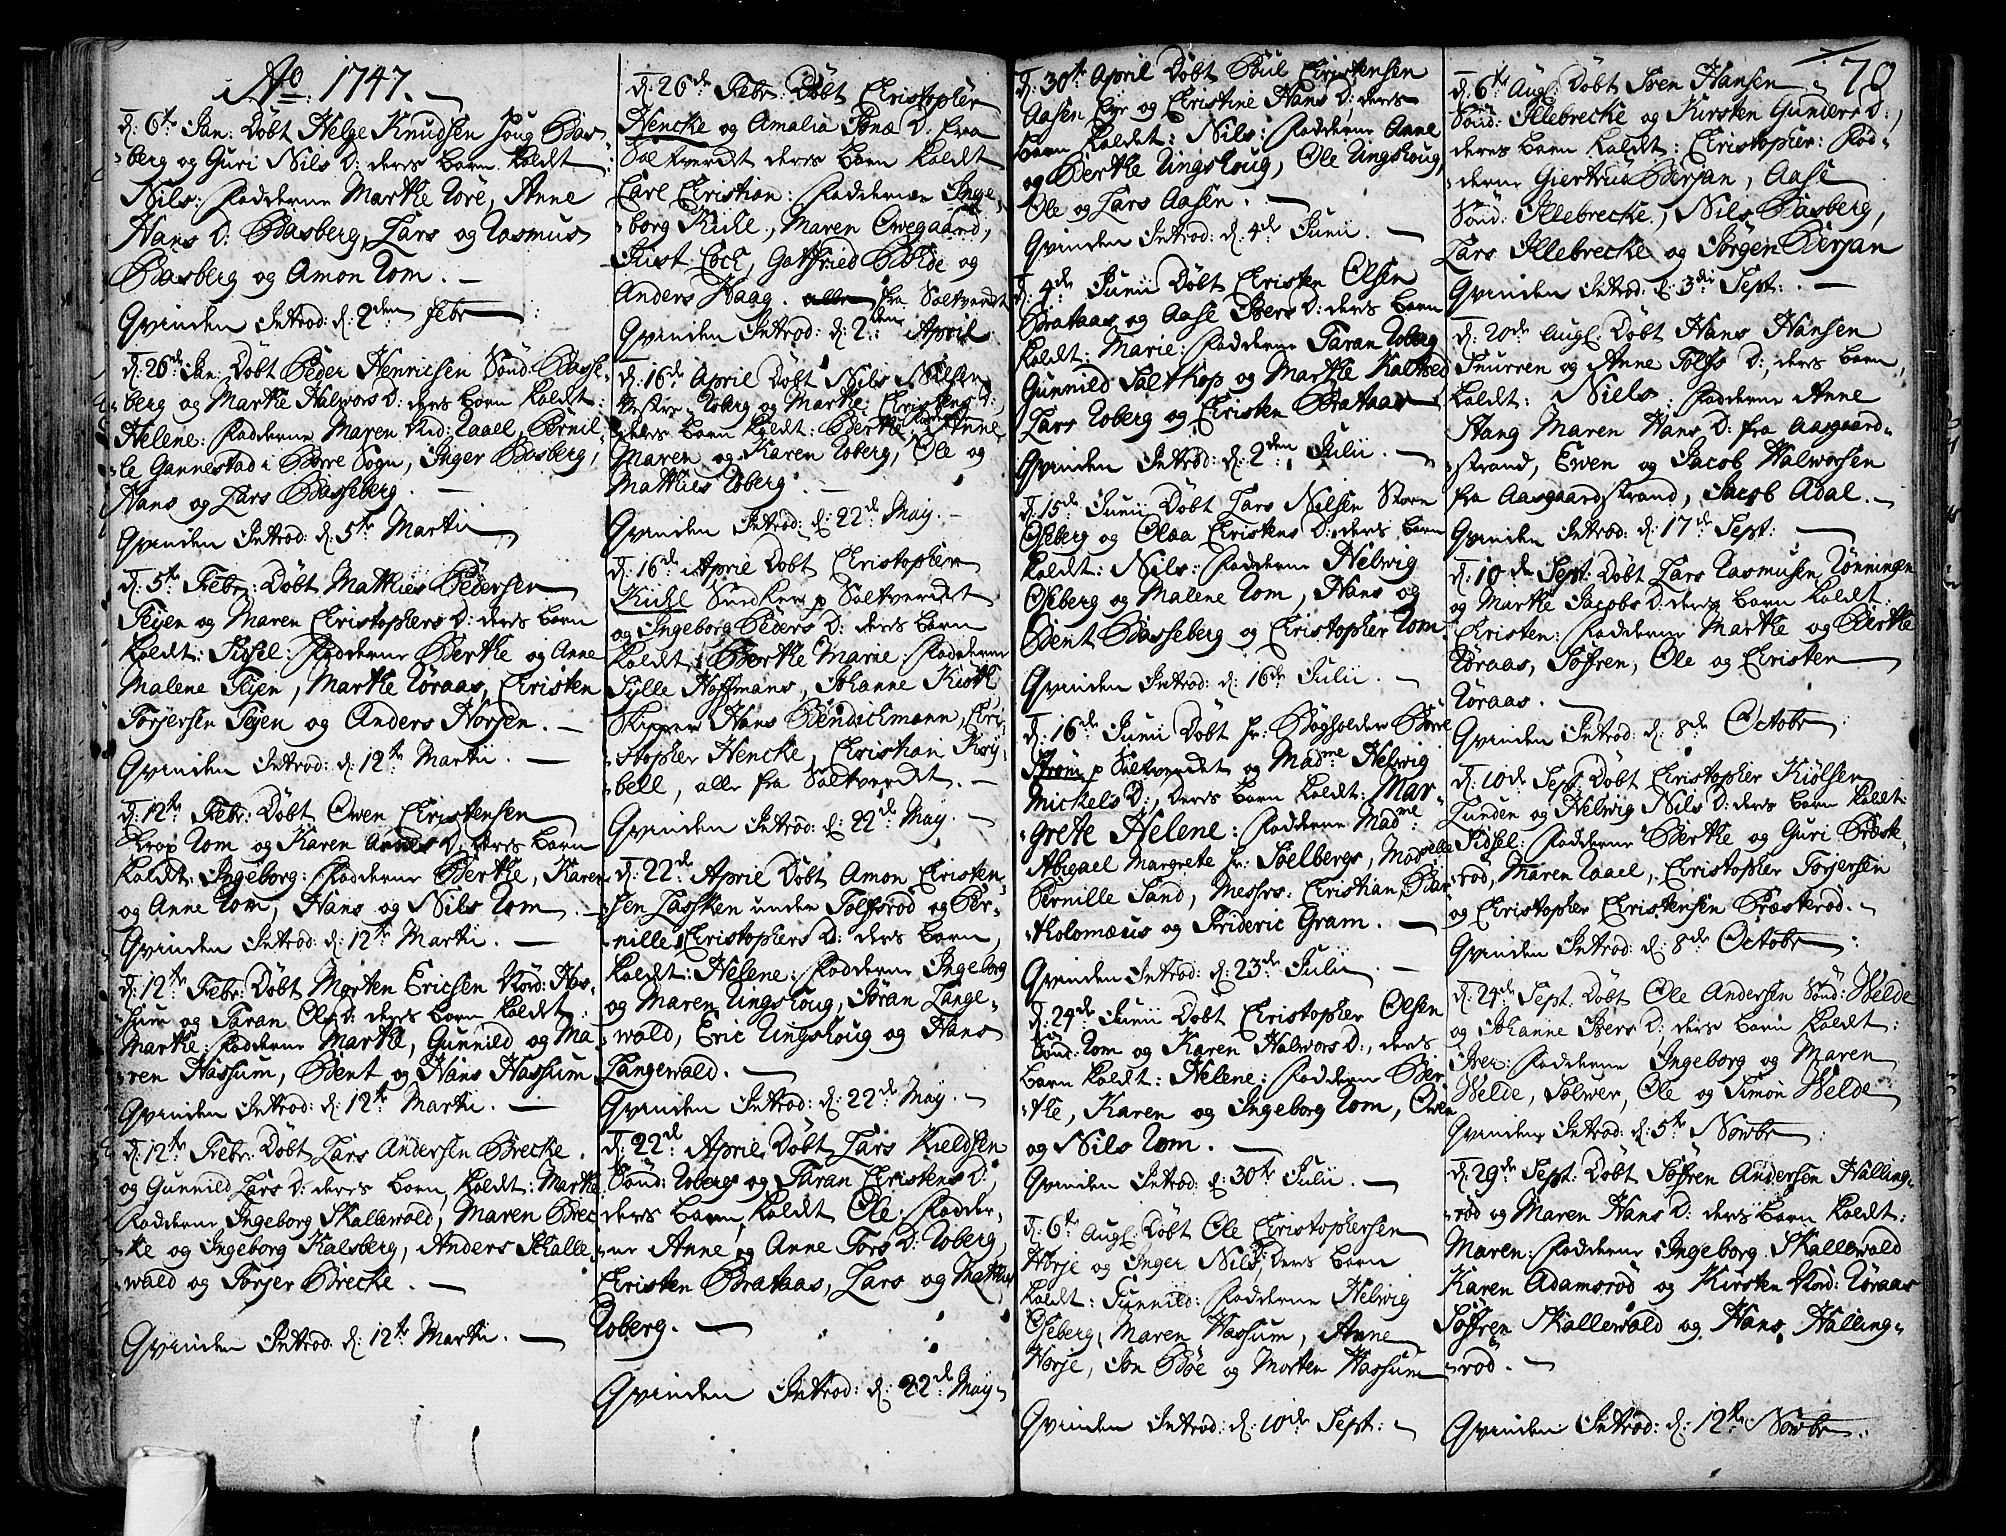 Ao 1747.
d: 6te Jan: Døbt Helge Knudsen Houg Bas-
berg og Guri Nils D: deres barn kaldt
Nils: fadderne Marthe Røre, Anne
Hans D: Basberg, Lars og Rasmus
Basberg og Amon Rom.
Qvinden Introd: d: 2den Febr:
d: 26de Jan: Døbt Peder Henricsen Sönd: Basse-
berg og Marthe Halvors D: deres barn kaldt
Helene: fadderne Maren Nord: Raael, Pernil-
le Gannestad i Borre Sogn, Inger Basberg,
Hans og Lars Basseberg.
Qvinden Introd: d: 5te Martii
d: 5te Febr: Døbt Mathies Pedersen
Feyen og Maren Christophers D: deres barn
kaldt: Sidsel: fadderne Berthe og Anne
Malene Feyen, Marthe Røraas, Christen
Torjersen Feyen og Anders Horjen.
Qvinden Introd: d: 12te Martii.
d: 12te Febr: Døbt Owen Christensen
Krop Rom og Karen Andes D: deres barn
kaldt: Ingeborg: fadderne Berthe, Karen
og Anne Rom, Hans og Nils Rom.
Qvinden Introd: d: 12te Martii.
d: 12te Febr: Døbt Morten Ericsen Nord: Has-
sum og Taran Ols D: deres barn kaldt:
Marthe: fadderne Marthe, Gunnild og Ma-
ren Hassum, Bent og Hans Hassum
Qvinden Introd: d: 12te Martii.
d: 12te Febr: Døbt Lars Andersen Brecke.
og Gunnild Lars D: deres barn kaldt: Marthe
fadderne Ingeborg Skallewald, Maren Brec-
ke og Ingeborg Kalsberg, Anders Skalle-
wald og Torjer Brecke.
Qvinden Introd: d: 12te Martii.
d: 26de Febr: Døbt Christopher
Hencke og Amalia D: fra
Saltverdet deres barn kaldt
Carl Christian: fadderne Inge-
borg Kichl, Maren Owegaard,
Just Cock, Gotfried Bohde og
Anders Haag. fra Saltverdet
Qvinden Introd: d: 2den April
d: 16de April Døbt Nils Nilsen
Roberg og Marthe Christens D:
deres barn kaldt: Berthe: Anne
Maren og Karen Roberg, Ole og
Mathies Roberg.
Qvinden Introd: d: 22de May.
d: 16de April Døbt Christopher
Kichl p Saltverdet
og Ingeborg Peders D: deres barn
kaldt: Berthe Marie: fadderne
Sylle Hoffmans, Johanne Kioth
Skipper Hans Bendichmann, Chri-
stopher Hencke, Christian Krÿ-
bell, alle fra Saltverdet.
Qvinden Introd: d: 22de May.
d: 22de April Døbt Amon Christen-
sen Lassken under Tolfsrod og Per-
nille Christophers D: deres barn,
kaldt: Helene: fadderne Ingeborg
og Maren Ringshoug, Jøran Lange-
wald, Eric Ringshoug og Hans
Langewald.
Qvinden Introd: d: 22de May.
d: 22de April Døbt Lars Kieldsen
Sönd: Roberg og Taran Christens D:,
deres barn kaldt Ole: fadder-
ne Anne og Anne Tors D: Roberg,
Christen Brataas, Lars og Mathies
Roberg.
Qvinden Introd: d: 22de May
70
d: 30te April Døbt Bül Christensen
Aasen Eje og Christine Hans D: deres
barn kaldt: Nils: fadderne Anne
og Berthe Ringshoug, Ole Ringshoug,
Ole og Lars Aasen.
Qvinden Introd: d: 4de Junii.
d: 4de Junii Døbt Christen Olsen
Brataas og Aase Ivers D: deres barn
kaldt: Marie: fadderne Taran Roberg
Gunnild Saltkop og Marthe Kaltved
Lars Roberg og Christen Brataas
Qvinden Introd: d: 2den Julii.
d: 15de Junii Døbt Lars Nilsen Store
Oseberg og Olaa Christens D: deres barn
kaldt: Nils: fadderne Helwig
Oseberg og Malene Rom, Hans og
Bent Basseberg og Christopher Rom.
Qvinden Introd: d: 16de Julii.
d: 16de Junii Døbt hr: Bogholder Börre
Ström p Saltverdet og Madme Helwig
Mickels D:, deres barn kaldt: Mar-
grete Helene: fadderne Madme:
Abigael Margrete hr: Soelbergs, Madselle
Pernille Sand, Messrs: Christian Bar-
tholomæus og Frideric Gram.
Qvinden Introd: d: 23de Julii.
d: 24de Junii Døbt Christopher Olsen
Sönd: Rom og Karen Halvors D:, deres
barn kaldt: Helene: fadderne Ber-
the, Karen og Ingeborg Rom, Owen
og Nils Rom.
Qvinden Introd: d: 30te Julii.
d: 6te Aug: Døbt Ole Christophersen
Horje og Inger Nils D: deres barn
kaldt: Gunnild: fadderne Helwig
Oseberg, Maren Hassum, Anne
Horje, Jon Böe og Morten Hassum
Qvinden Introd: d: 10de Sept:
d: 6te Aug: Døbt Sven Hansen
Sönd: Illebrecke og Kirsten Gunders D:,
deres barn kaldt: Christopher: fad-
derne Giertrud Berjan, Aase
Sönd: Illebrecke, Nils Basberg,
Lars Illebrecke og Jörgen Berjan
Qvinden Introd: d: 3die Sept:.
d: 20de Aug: Døbt Hans Hansen
Snurren og Anne Tolfs D:, deres barn,
kaldt: Niels: fadderne Anne
Stang Maren Hans D: fra Aasgaard-
strand, Ewen og Jacob Halworsen
fra Aasgaardstrand, Jacob Adal.
Qvinden Introd: d: 17de Sept:
d: 10de Sept: Døbt Lars Rasmusen Rönningen
og Marthe Jacobs D: deres barn kaldt:
Christen: fadderne Marthe og Berthe
Röraas, Söffren, Ole og Christen
Röraas.
Qvinden Introd: d: 8de Octobr:
d: 10de Sept: Døbt Christopher Kiölsen
Lunden og Helwig Nils D: deres barn kaldt:
Sidsel: fadderne Berthe og Guri Præste-
röd, Maren Raael, Christopher Torjersen
og Christopher Christensen Præsteröd.
Qvinden Introd: d: 8de Octobr:
d: 24de Sept: Døbt Ole Andersen Sönd: Welde
og Johanne Ivers D: deres barn kaldt:
Iver: fadderne Ingeborg og Maren
Welde, Solwer, Ole og Simon Welde
Qvinden Introd: d: 5te Novbr:
d: 29de Sept: Døbt Söffren Andersen Halling-
röd og Maren Hans D: deres barn kaldt:
Maren: fadderne Ingeborg Skallewald
Karen Adamsröd og Kirsten Nord: Röraas
Söffren Skallewald og Hans Halling-
röd.
Qvinden Introd: d: 12te Novbr: